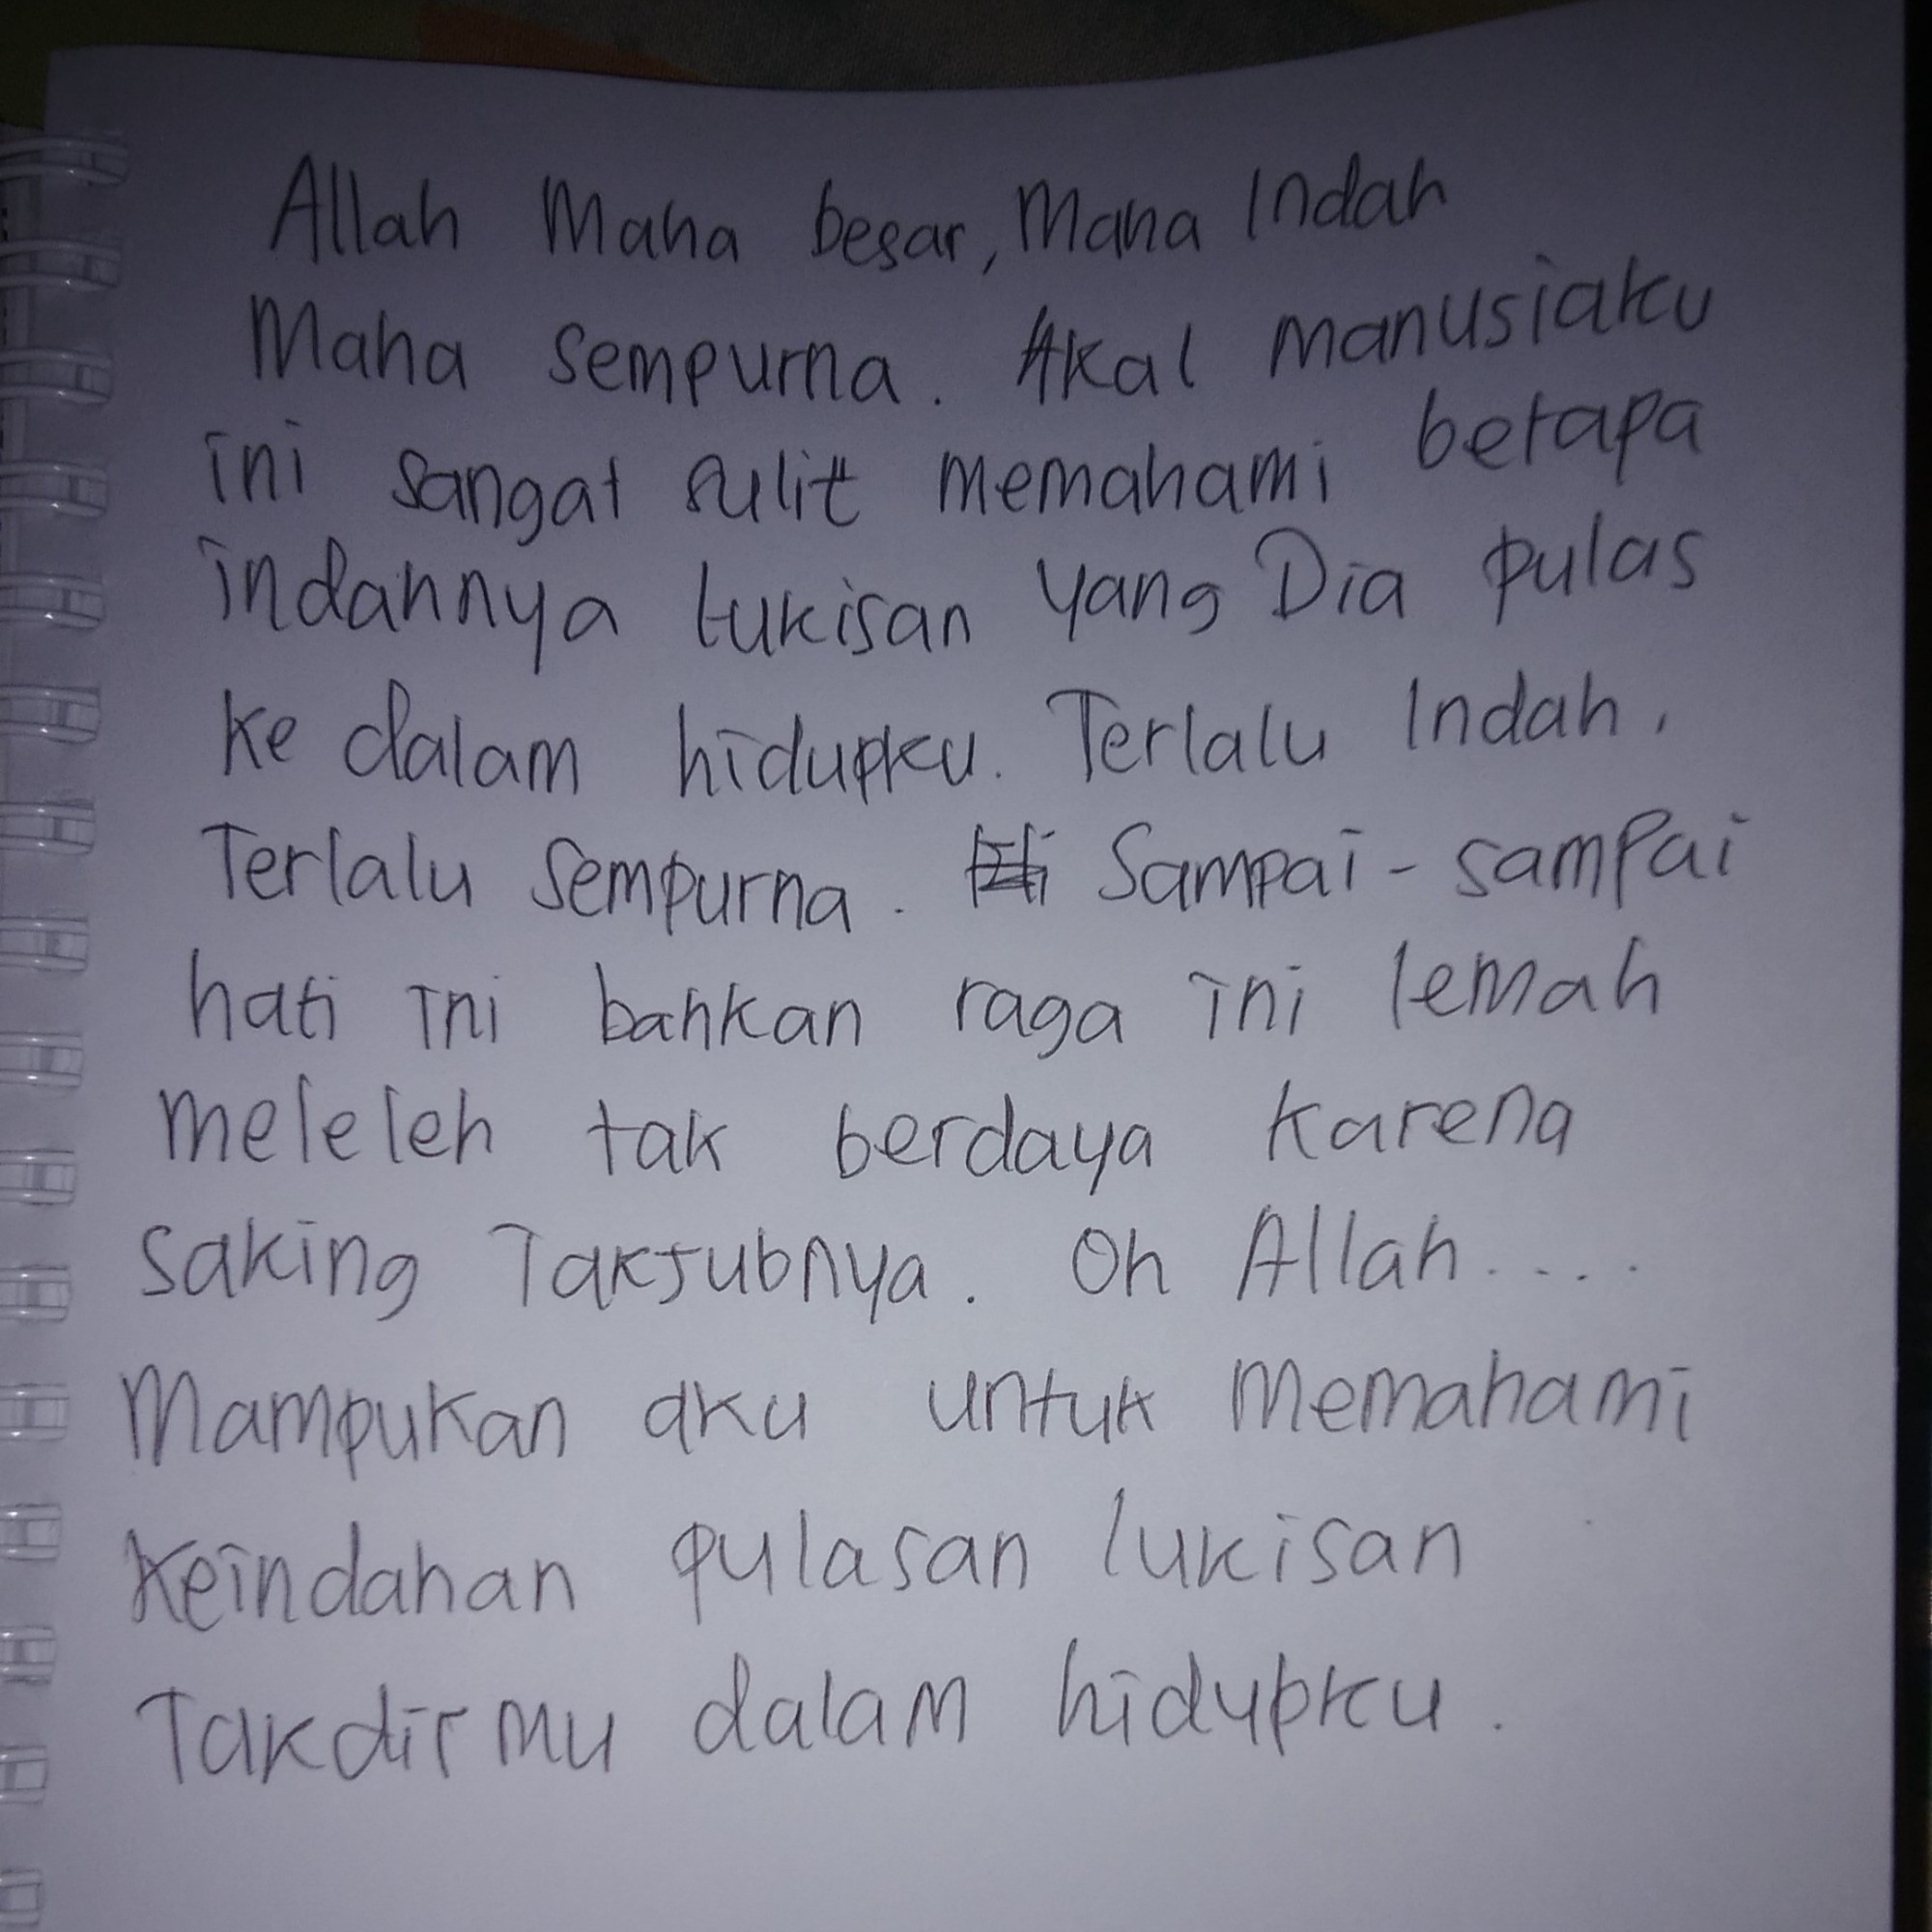 Allah Maha besar, Maha Indah
Maha sempurna. Akal manusiaku
ini sangat sulit memahami betapa
indahnya lukisan yang Dia pulas
ke dalam hidupku. Terlalu Indah.
Terlalu sempurna. Sampai-sampai
hati ini bahkan raga ini lemah
meleleh tak berdaya karena
saking Takjubnya. Oh Allah....
Mampukan aku untuk memahami
keindahan pulasan lukisan
Takdirmu dalam hidupku.